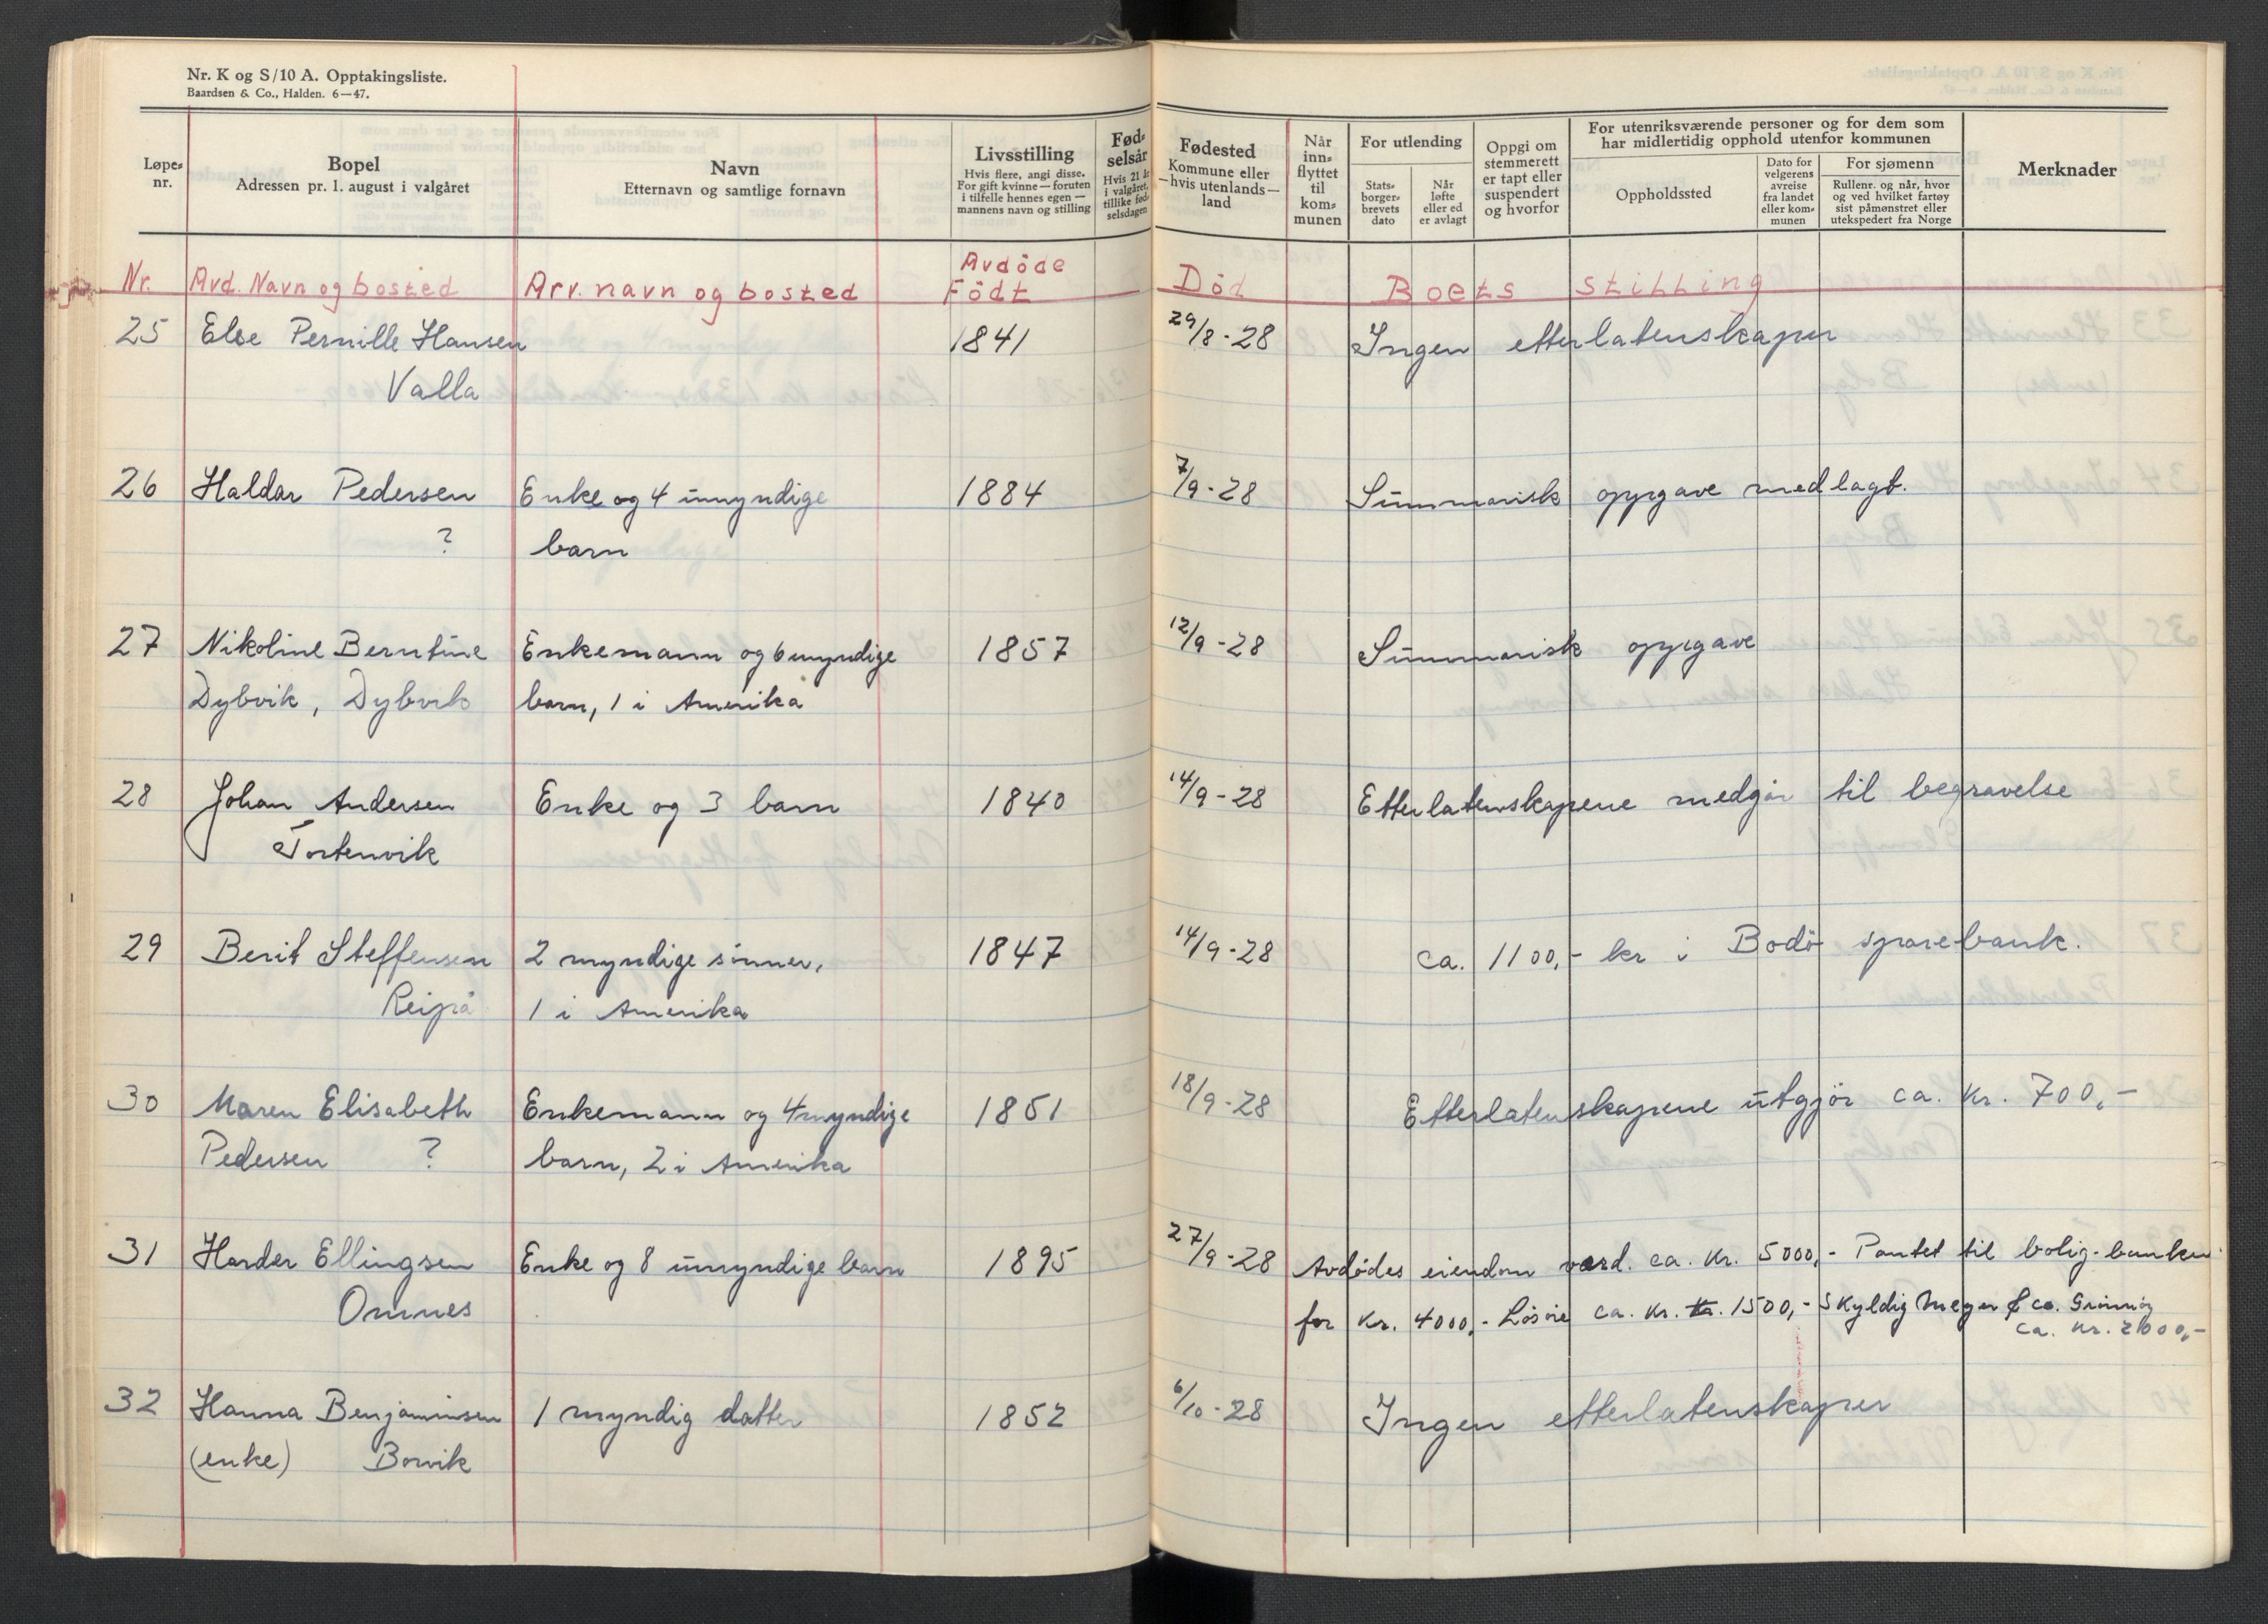 Nr. K og S/10 A. Opptakingsliste.
Baardsen & Co., Halden. 6—47.
Løpe-
nr.
Bopel
Adressen pr. 1. august i valgåret
Navn
Etternavn og samtlige fornavn
Livsstilling
Hvis flere, angi disse.
For gift kvinne — foruten
i tilfelle hennes egen —
mannens navn og stilling
Fød-
selsår
Hvis 21 år
i valgåret,
tillike fød-
selsdagen
Fødested
Kommune eller
—hvis utenlands—
land
Når
inn-
flyttet
til
kom-
munen
For utlending
Stats-
borger-
brevets
dato
Når
løfte
eller ed
er avlagt
Oppgi om
stemmerett
er tapt eller
suspendert
og hvorfor
For utenriksværende personer og for dem som
har midlertidig opphold utenfor kommunen
Oppholdssted
Dato for
velgerens
avreise
fra landet
eller kom-
munen
For sjømenn
Rullenr. og når, hvor
og ved hvilket fartøy
sist påmønstret eller
utekspedert fra Norge
Merknader
Nr. Avd. Navn og bosted Arv. navn og bosted Avdöde
Födt Död Boets stilling
25 Else Pernille Hansen 1841 29/8-28 Ingen etterlatenskaper
Valla
26 Haldar Pedersen Enke og 4 umyndige 1884 7/9-28 Summarisk oppgave medlagt.
? barn
27 Nikoline Berntine Enkemann og 6 myndige 1857 12/9-28 Summarisk oppgave
Dybvik, Dybvik barn, 1 i Amerika
28 Johan Andersen Enke og 3 barn 1840 14/9-28 Etterlatenskapene medgår til begravelse
Tortenvik
29 Berit Steffensen 2 myndige sønner, 1847 14/9-28 ca. 1100,- kr i Bodø sparebank.
Reipå 1 i Amerika
30 Maren Elisabeth Enkemann og 4 myndige 1851 18/9-28 Etterlatenskapene utgjør ca. kr. 700,-
Pedersen ? barn, 2 i Amerika
31 Harder Ellingsen Enke og 8 umyndige barn 1895 27/9-28 Avdødes eiendom verd. ca. kr. 5000,- Pantet til bolig-banken
Omnes for kr. 4000,- Løsøre ca. kr. kr. 1500,- Skyldig Meyer & co.
ca. kr. 2000,-
32 Hanna Benjaminsen 1 myndig datter 1852 6/10-28 Ingen etterlatenskaper
(enke) Borvik